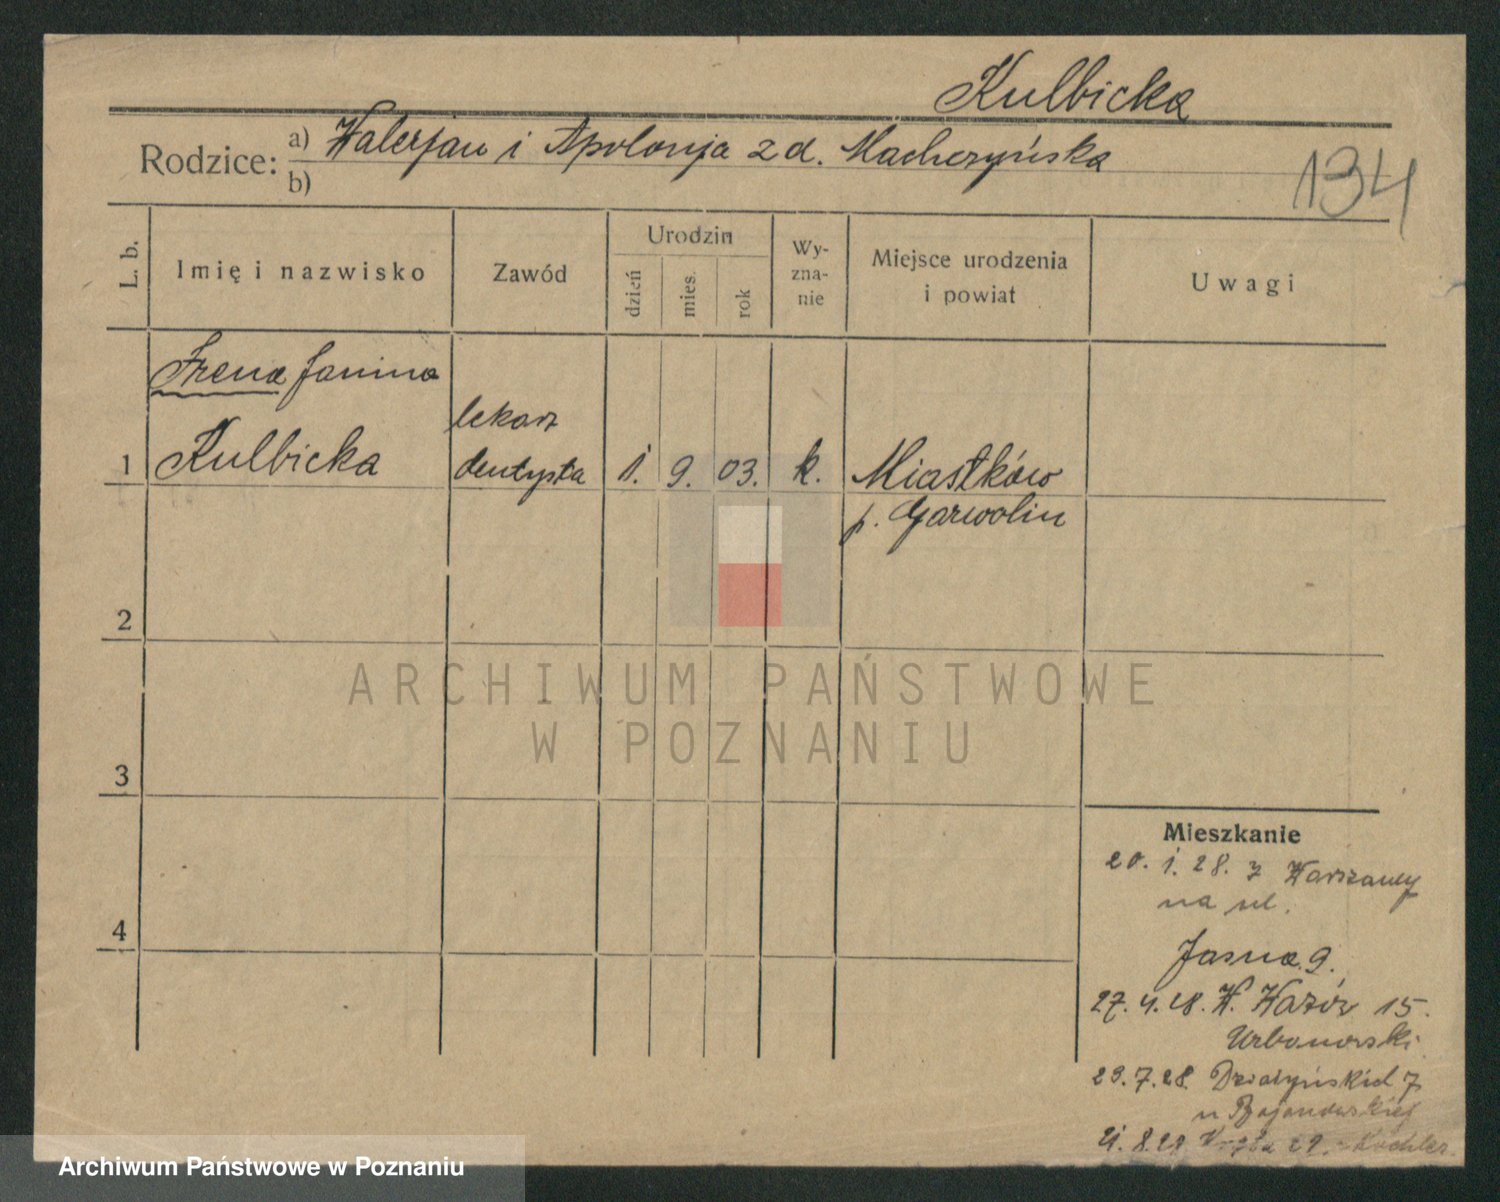 Kulbicka
Rodzice: a) Walerjan i Apolonja z d. Macherzyńska
b)
134
L. b.
Imię i nazwisko
Zawód
Urodzin
dzień
mies.
rok
Wy-
zna-
nie
Miejsce urodzenia
i powiat
Uwagi
Irena Janina
Kulbicka
lekarz
dentysta
1
1. 9. 03. k.
Miastków
p. Garwolin
2
3
4
ARCHIWUM PAŃSTWOWE
W POZNANIU
Mieszkanie
20. 1. 28. z Warszawy
na ul.
Jasna 9.
27. 4. 28. W. Wazów 15.
Urbanowski
23. 7. 28. Działyńskich 7
u Bojanowskiej
21. 8. 29 29. Kochler
Archiwum Państwowe w Poznaniu